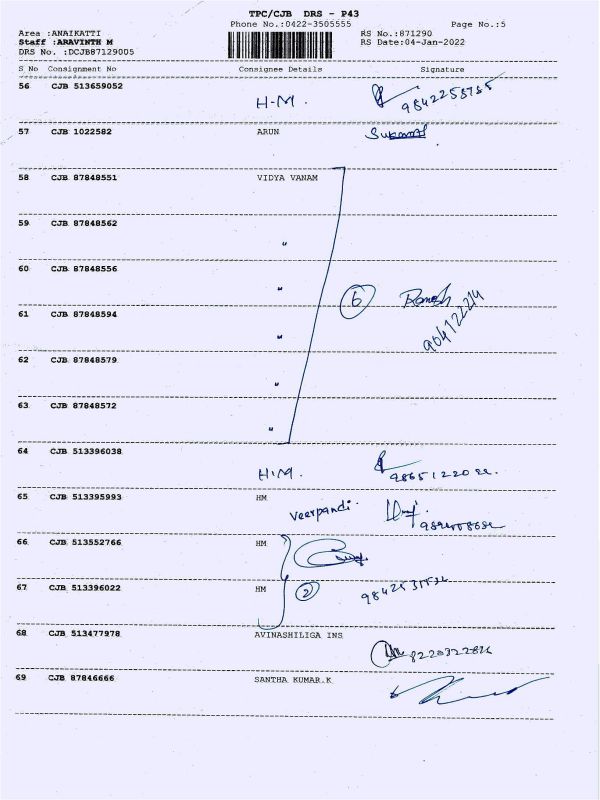 TPC/CJB DRS - P43
Phone No.:0422-3505555 Page No.:5
Area :ANAIKATTI RS No.:871290
Staff :ARAVINTH M RS Date:04-Jan-2022
DRS No. :DCJB87129005
S No Consignment No Consignee Details Signature
56 CJB 513659052
H.M.
57 CJB 1022582 ARUN
58 CJB 87848551 VIDYA VANAM
59 CJB 87848562
"
60 CJB 87848556
"
6 Ramesh
61 CJB 87848594
"
62 CJB 87848579
"
63 CJB 87848572
"
64 CJB 513396038
H.M.
65 CJB 513395993 HM
veerpandi.
66 CJB 513552766 HM
67 CJB 513396022 HM
2
68 CJB 513477978 AVINASHILIGA INS
69 CJB 87846666 SANTHA KUMAR.K